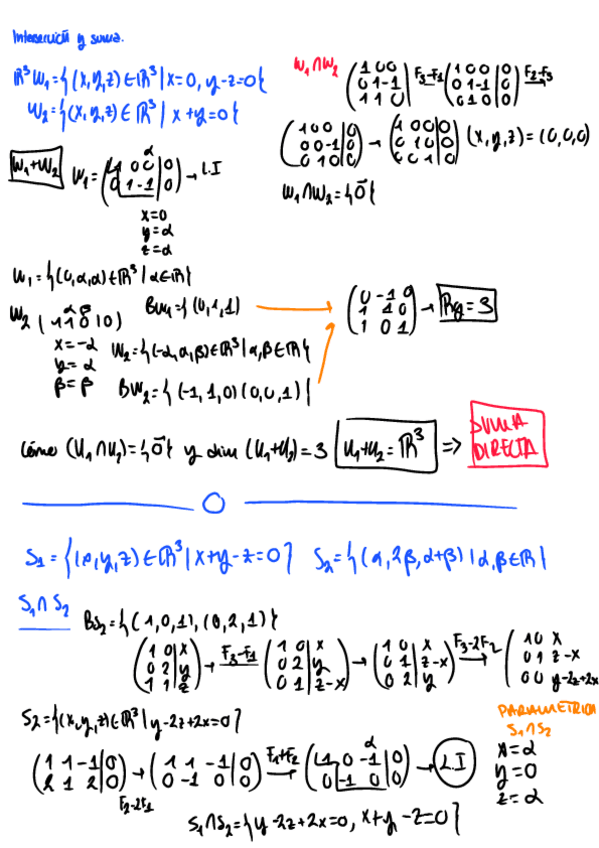 Intersección y suma.
ℝ³ W₁={(x,y,z)∈ℝ³|x=0, y-z=0}
W₂={(x,y,z)∈ℝ³|x+y=0}
W₁∩W₂
(1 0 0 / 0 1 -1 / 1 1 0) F₃-F₁ (1 0 0|0 / 0 1 -1|0 / 0 1 0|0) F₂-F₃ →
(1 0 0|0 / 0 0 -1|0 / 0 1 0|0) → (1 0 0 0 / 0 1 0|0 / 0 0 1|0) (x,y,z)=(0,0,0)
W₁∩W₂={0̄}
W₁+W₂
W₁=(1 0 0|0 / 0 1 -1|0) → L.I
α
x=0
y=α
z=α
W₁={(0,α,α)∈ℝ³|α∈ℝ}
BW₁={(0,1,1)
W₂ (1 1 0|0)
α β
x=-α
y=α
β=β
W₂={(-α,α,β)∈ℝ³|α,β∈ℝ}
BW₂={(-1,1,0)(0,0,1)}
(0 -1 0 / 1 1 0 / 1 0 1) → Rg=3
Cómo (U₁∩U₂)={0̄} y dim (U₁+U₂)=3 U₁+U₂=ℝ³ => SUMA DIRECTA
S₁={(x,y,z)∈ℝ³|x+y-z=0} S₂={(α,2β,α+β)|α,β∈ℝ}
S₁∩S₂
BS₂={(1,0,1),(0,2,1)}
(1 0|x / 0 2|y / 1 1|z) → F₃-F₁ (1 0|x / 0 2|y / 0 1|z-x) → (1 0|x / 0 1|z-x / 0 2|y) F₃-2F₂ → (1 0 x / 0 1 z-x / 0 0 y-2z+2x
S₂={(x,y,z)∈ℝ³|y-2z+2x=0}
(1 1 -1|0 / 2 1 2|0) → (1 1 -1|0 / 0 -1 0|0) F₁+F₂ → (1 0 -1|0 / 0 -1 0|0) → L.I
F₂-2F₁
α
PARAMETRICA
S₁∩S₂
x=α
y=0
z=α
S₁∩S₂={y-2z+2x=0, x+y-z=0}